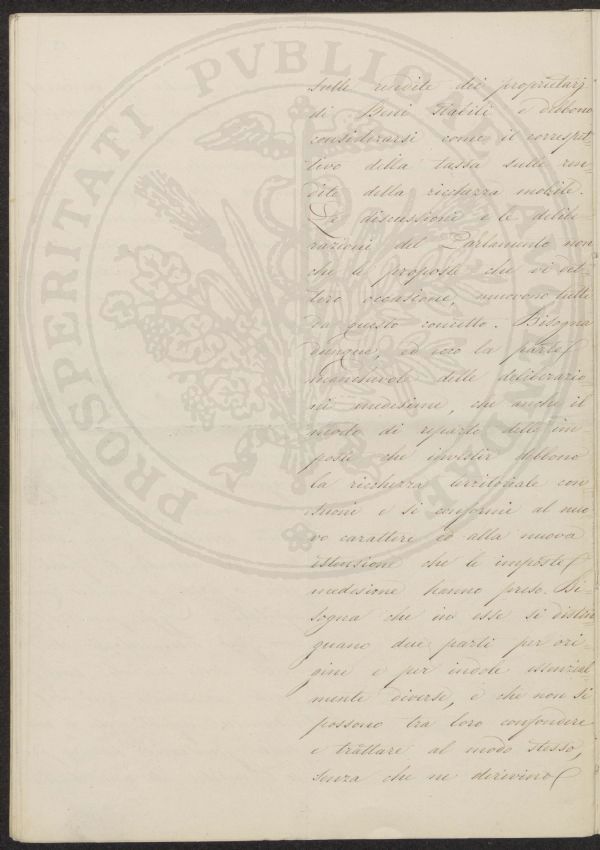 sulle rendite dei proprietarj
di Beni stabili e debbono
considerarsi come il corrispet-
tivo della tassa sulle ren-
dite della ricchezza mobile.
Le discussioni e le delibe-
razioni del Parlamento non
che le proposte che vi det-
tero occasione, muovono tutte
da questo concetto. Bisogna
dunque, ed ecco la parte
manchevole delle deliberazio-
ni medesime, che anche il
modo di riparto delle im
poste che investir debbono
la ricchezza territoriale con
suoni e si conformi al nuo
vo carattere ed alla nuova
estensione che le imposte
medesime hanno preso. Bi-
sogna che in esse si distin
guano due parti per ori-
gine e per indole essenzial
mente diverse, e che non si
possono tra loro confondere
e trattare al modo stesso,
senza che ne derivino
PROSPERITATI PVBLICAE